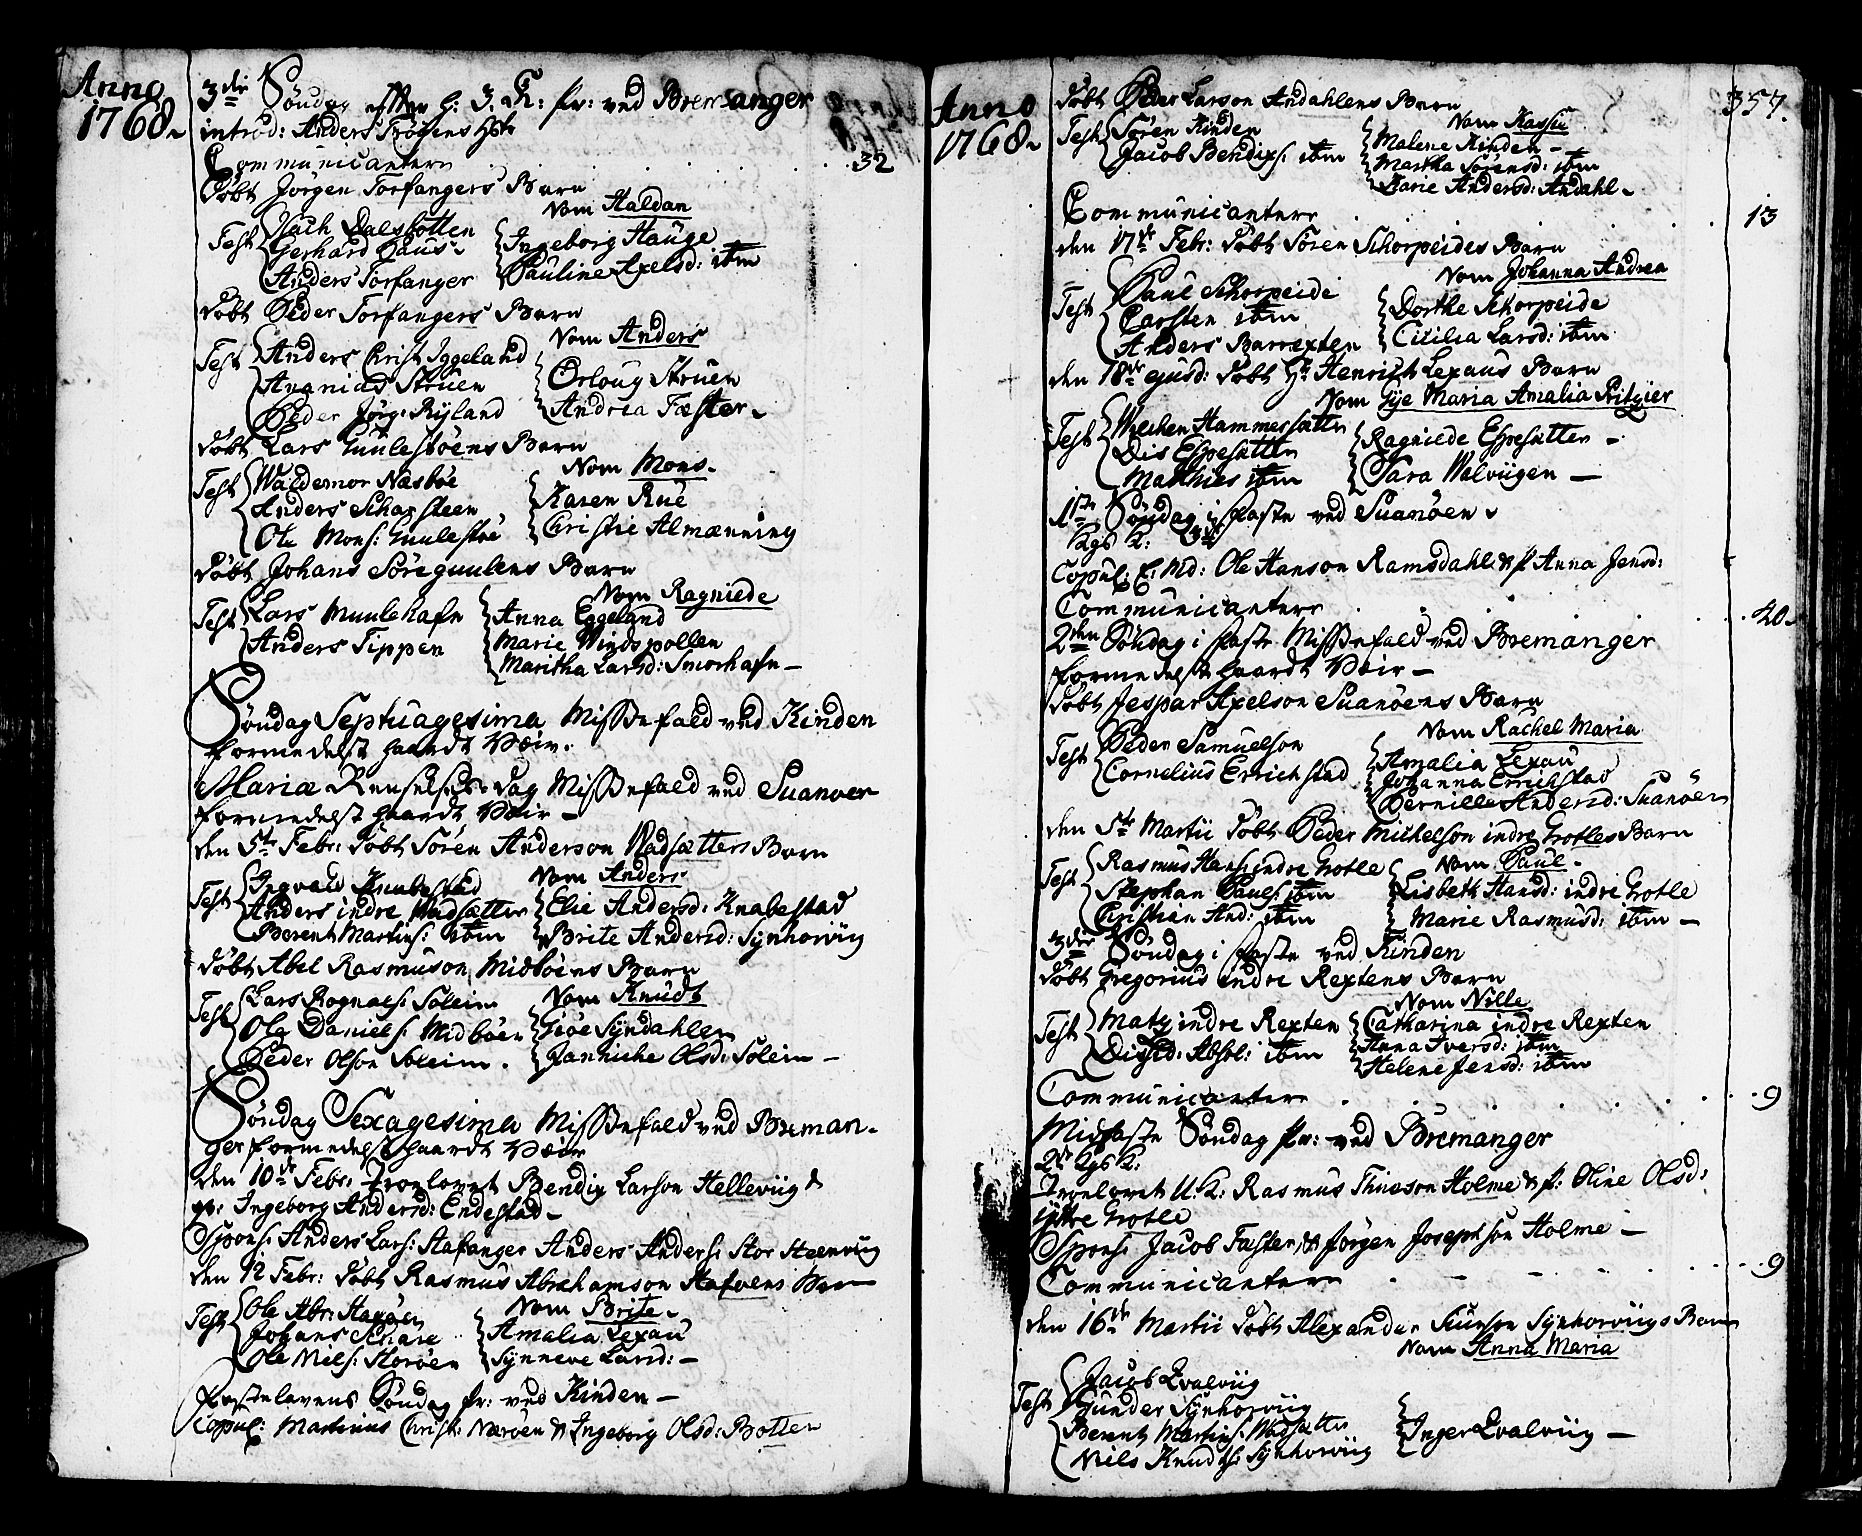 Anno
1768
3die Søndag effter H: 3. K: Pr: ved Bremanger
introd: Anders Hstr
Communicantere . . . 32
Døbt Jørgen Torfangers Barn
Nom Haldan
Test Dalsbotten
Gerhard
Anders Torfanger
Ingeborg Hauge
Pauline Axelsd: ibm
Døbt Peder Torfangers Barn
Nom Anders
Test Anders Christ: Iggeland
Ananias Struen
Peder Jørg: Ryland
Orloug Struen
Andrea Fæster
Døbt Lars Guulesbøens Barn
Nom Mons
Test Waldemor Næsbøe
Anders Scharsteen
Ole Mons: Guulesbøe
Karen Rue
Christie Almænning
Døbt Johans Søreguulens Barn
Nom Ragniede
Test Lars Muulehafn
Anders Tippen
Anna Eggeland
Marie Windspollen
Maritha Larsd: Smørhafn
Søndag Septuagesima Missefald ved Kinden
formedelst haardt Væir.
Mariæ Renselses Dag Missefald ved Suanøen
formedelst haardt Væir
den 5te Febr: døbt Søren Anderson Wadsætters Barn
Nom Anders
Test Ingvald Knabestad
Anders indre Wadsætter
Berent Martins: ibm
Elie Andersd: Knabestad
Brite Andersd: Synhorviig
døbt Abel Rasmuson Midbøens Barn
Nom Knudt
Test Lars Rognals: Soleim
Ole Daniels: Midbøen
Peder Olson Soleim.
Giøe Syndahlen
Janniche Olsd: Solein
Søndag Sexagesima Missefald ved Breman-
ger formedelst haardt Væir
den 10de Febr: Trolovet Bendix Larson Helleviig &
qv: Ingeborg Andersd: Endestad
Spons: Anders Lars: Stafanger Anders Anders: Stor Steenviig
den 12 Febr: døbt Rasmus Abrahamson Haføens Barn
Nom Brite
Test Ole Abr: Haføen
Johans Schare
Ole Niels: Storøen
Amalia Lexau
Synneve Larsd:
Fastelavens Søndag Pr: ved Kinden
Copul: Martinus Christ: Nærøen & Ingeborg Olsd: Botten
Anno
1768
357.
døbt Peder Larson Andahlens Barn
Nom Kassu
Test Søren Kinden
Jacob Bendixs: ibm
Malene Kinden
Martha Sørensd: ibm
Marie Andersd: Andahl
Communicantere . . . 13
den 17de Febr: døbt Søren Schorpeides Barn
Nom Johanna Andrea
Test Paul Schorpeide
Carsten ibm
Anders Barrexten
Dorthe Schorpeide
Cicilia Larsd: ibm
den 18de ejusd: døbt Hr Henrich Lexaus Barn
Nom Gye Maria Amalia Pritzier
Test Wechen Hammersætter
Dis Espesætter
Mathies ibm
Ragniede Espesætter
Sara Walviigen
1ste Søndag i Faste ved Suanøen
Kgs K:
Copul: E: Md: Ole Hanson Ramsdahl & P Anna Jensd:
Communicantere . . . 20
2den Søndag i Faste Missefald ved Bremanger
formedelst haardt Væir
døbt Jespar Axelson Suanøens Barn
Nom Rachel Maria
Test Peder Samuelson
Cornelius Errichstad
Amalia Lexau
Johanna Errichstad
Pernille Andersd: Suanøen
den 5te Martii døbt Peder Michelson indre Grotles Barn
Nom Paul
Test Rasmus Hans: indre Grotle
Stephan Pauls: ibm
Christian And: ibm
Lisbeth Hansd: indre Grotle
Marie Rasmusd: ibm
3die Søndag i Faste ved Kinden
døbt Gregorius indre Rextens Barn
Nom Nille
Test Matz indre Rexten
Absol: ibm
Catharina indre Rexten
Anna Iversd: ibm
Helene Jensd: ibm
Communicantere . . . 9
Midfaste Søndag Pr: ved Bremanger
2de Kgs K:
Trolovet U. K: Rasmus Thueson Holme & P: Oline Olsd:
ijttre Grotle
Spons: Jacob Faster, & Jørgen Josephson Holme
Communicantere . . . 9
den 16de Martii døbt Alexander Siurson Synhorviigs Barn
Nom Anna Maria
Test Jacob Qvalviig
Gunder Synhorviig
Berent Martins: Wadsætter
Niels Knuds: Synhorviig
Inger Qvalviig